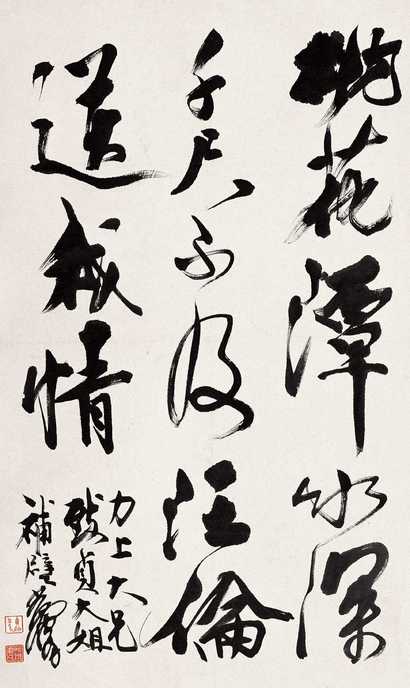 桃花潭水深
千尺不及汪倫
送我情
力上大兄
毅貞大姐
補壁